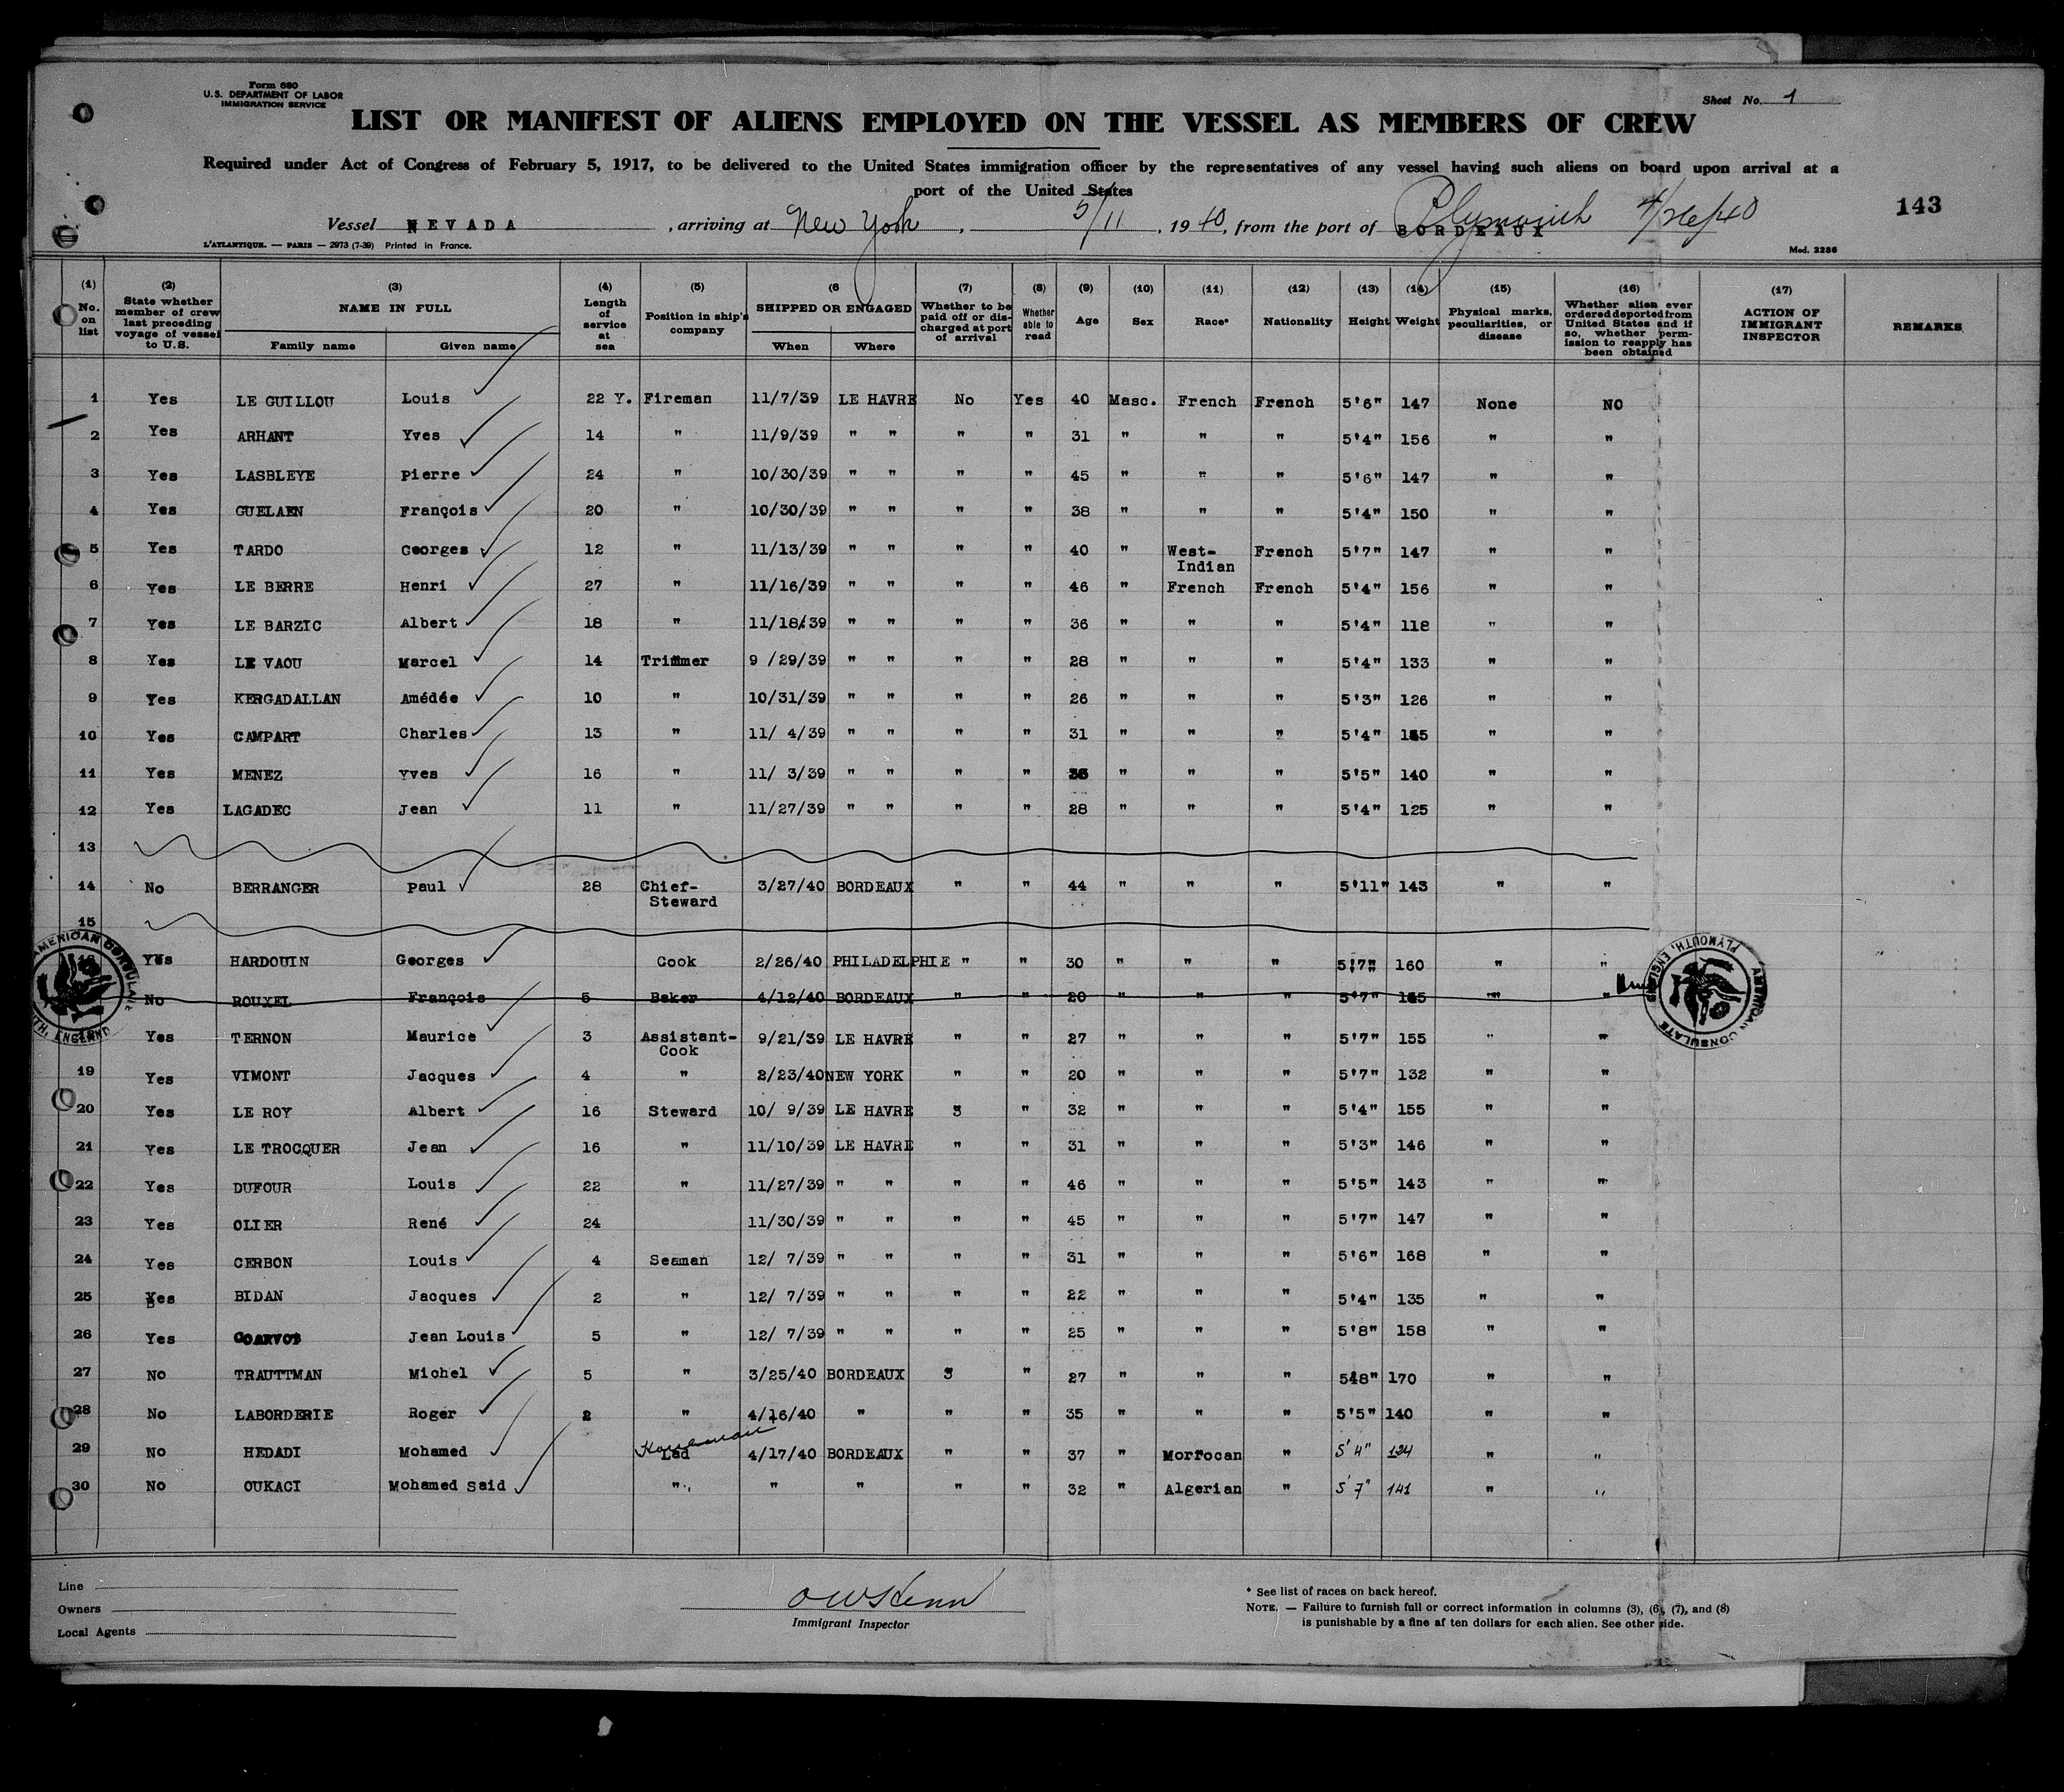 Form 680
U.S. DEPARTMENT OF LABOR
IMMIGRATION SERVICE
Sheet No. 1
LIST OR MANIFEST OF ALIENS EMPLOYED ON THE VESSEL AS MEMBERS OF CREW
Required under Act of Congress of February 5, 1917, to be delivered to the United States immigration officer by the representatives of any vessel having such aliens on board upon arrival at a
port of the United States
Vessel NEVADA , arriving at New York , 5/11 , 1940, from the port of BORDEAUX Plymouth 4/26/40
143
L'ATLANTIQUE. — PARIS — 2973 (7-39) Printed in France.
Mod. 2286
(1) No. on list (2) State whether member of crew last preceding voyage of vessel to U.S. (3) NAME IN FULL Family name Given name (4) Length of service at sea (5) Position in ship's company (6 SHIPPED OR ENGAGED When Where (7) Whether to be paid off or discharged at port of arrival (8) Whether able to read (9) Age (10) Sex (11) Race* (12) Nationality (13) Height (14) Weight (15) Physical marks, peculiarities, or disease (16) Whether alien ever ordered deported from United States and if so, whether permission to reapply has been obtained (17) ACTION OF IMMIGRANT INSPECTOR REMARKS
1 Yes LE GUILLOU Louis 22 Y. Fireman 11/7/39 LE HAVRE No Yes 40 Masc. French French 5'6" 147 None NO
2 Yes ARHANT Yves 14 " 11/9/39 " " " " 31 " " " 5'4" 156 " "
3 Yes LASBLEYE Pierre 24 " 10/30/39 " " " " 45 " " " 5'6" 147 " "
4 Yes GUELAEN François 20 " 10/30/39 " " " " 38 " " " 5'4" 150 " "
5 Yes TARDO Georges 12 " 11/13/39 " " " " 40 " West-Indian French 5'7" 147 " "
6 Yes LE BERRE Henri 27 " 11/16/39 " " " " 46 " French French 5'4" 156 " "
7 Yes LE BARZIC Albert 18 " 11/18/39 " " " " 36 " " " 5'4" 118 " "
8 Yes LE VAOU Marcel 14 Trimmer 9 /29/39 " " " " 28 " " " 5'4" 133 " "
9 Yes KERGADALLAN Amédée 10 " 10/31/39 " " " " 26 " " " 5'3" 126 " "
10 Yes CAMPART Charles 13 " 11/ 4/39 " " " " 31 " " " 5'4" " "
11 Yes MENEZ Yves 16 " 11/ 3/39 " " " " " " " 5'5" 140 " "
12 Yes LAGADEC Jean 11 " 11/27/39 " " " " 28 " " " 5'4" 125 " "
13
14 No BERRANGER Paul 28 Chief-Steward 3/27/40 BORDEAUX " " 44 " " " 5'11" 143 " "
15
Yes HARDOUIN Georges Cook 2/26/40 PHILADELPHIE " " 30 " " " 5'7" 160 " "
No ROUXEL François 5 Baker 4/12/40 BORDEAUX " " 20 " " " 5'7" " "
Yes TERNON Maurice 3 Assistant-Cook 9/21/39 LE HAVRE " " 27 " " " 5'7" 155 " "
19 Yes VIMONT Jacques 4 " 2/23/40 NEW YORK " " 20 " " " 5'7" 132 " "
20 Yes LE ROY Albert 16 Steward 10/ 9/39 LE HAVRE " " 32 " " " 5'4" 155 " "
21 Yes LE TROCQUER Jean 16 " 11/10/39 LE HAVRE " " 31 " " " 5'3" 146 " "
22 Yes DUFOUR Louis 22 " 11/27/39 " " " " 46 " " " 5'5" 143 " "
23 Yes OLIER René 24 11/30/39 " " " " 45 " " " 5'7" 147 " "
24 Yes CERBON Louis 4 Seaman 12/ 7/39 " " " " 31 " " " 5'6" 168 " "
25 Yes BIDAN Jacques 2 " 12/ 7/39 " " " " 22 " " " 5'4" 135 " "
26 Yes COARVOT Jean Louis 5 " 12/ 7/39 " " " " 25 " " " 5'8" 158 " "
27 No TRAUTTMAN Michel 5 " 3/25/40 BORDEAUX " " 27 " " " 5'8" 170 " "
28 No LABORDERIE Roger 2 " 4/16/40 " " " 35 " " " 5'5" 140 " "
29 No HEDADI Mohamed Lad 4/17/40 BORDEAUX " " 37 " Morrocan " 5'4" 124 " "
30 No OUKACI Mohamed Said " " " " " 32 " Algerian " 5'7" 141 " "
AMERICAN CONSULATE PLYMOUTH, ENGLAND
AMERICAN CONSULATE PLYMOUTH, ENGLAND
Line
Owners
Local Agents
Immigrant Inspector
* See list of races on back hereof.
NOTE. — Failure to furnish full or correct information in columns (3), (6), (7), and (8)
is punishable by a fine af ten dollars for each alien. See other side.